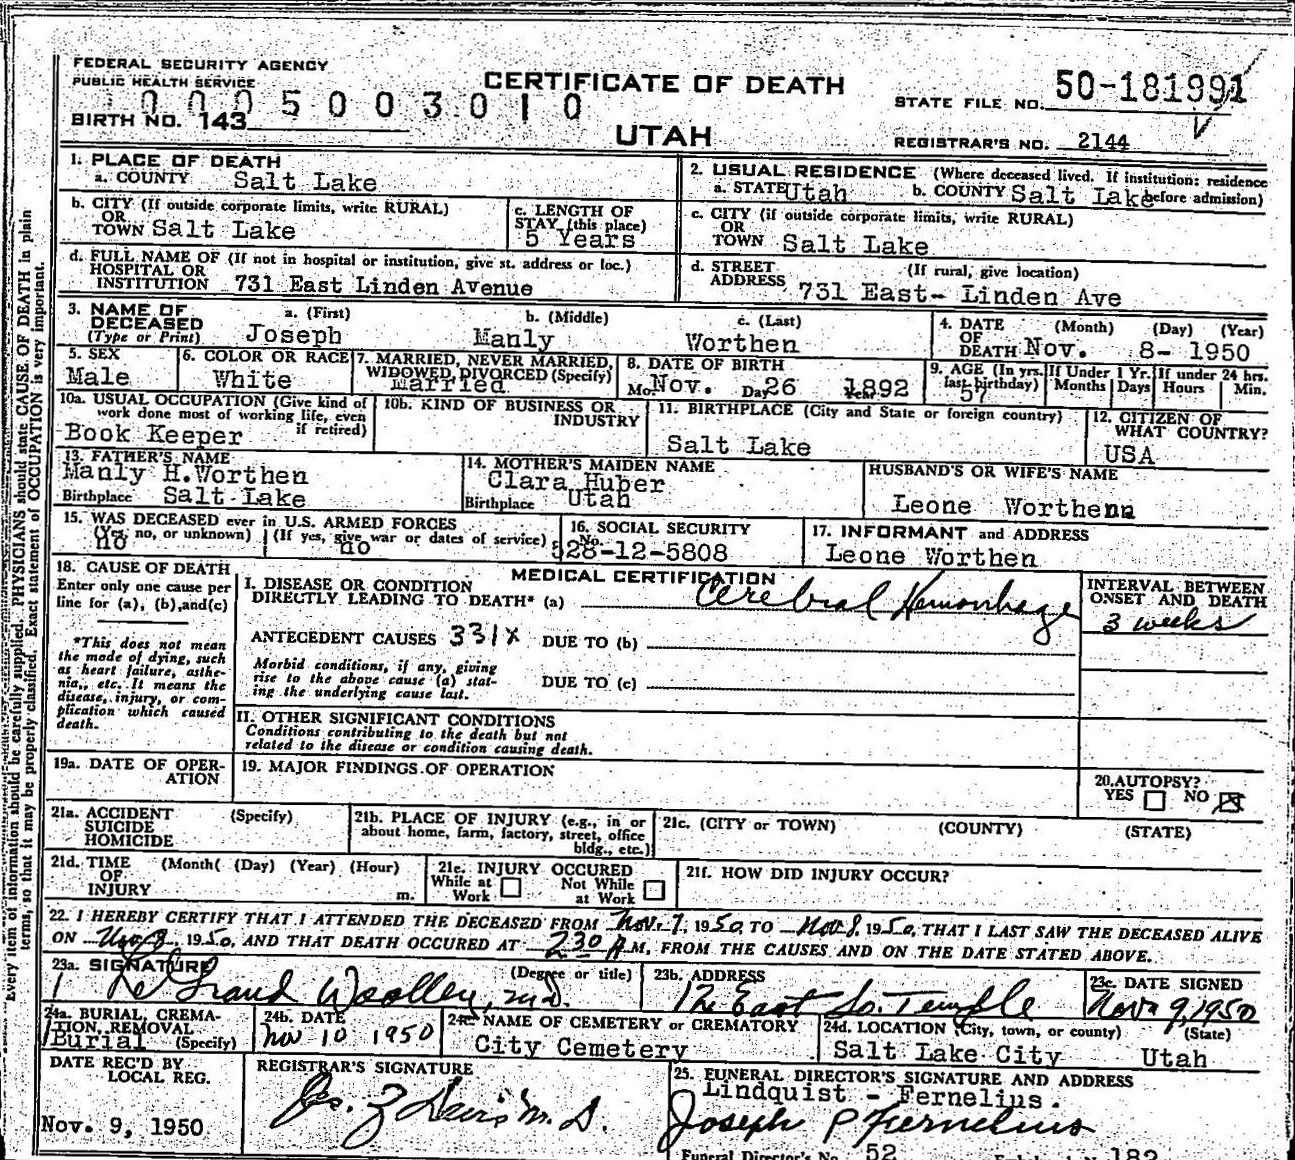 FEDERAL SECURITY AGENCY
PUBLIC HEALTH SERVICE
CERTIFICATE OF DEATH
STATE FILE NO. 50-181991
0005003010
BIRTH NO. 143
UTAH
REGISTRAR'S NO. 2144
1. PLACE OF DEATH
a. COUNTY Salt Lake
2. USUAL RESIDENCE (Where deceased lived. If institution: residence before admission)
a. STATE Utah b. COUNTY Salt Lake
b. CITY (If outside corporate limits, write RURAL)
OR
TOWN Salt Lake
c. LENGTH OF
STAY (this place)
5 Years
c. CITY (if outside corporate limits, write RURAL)
OR
TOWN Salt Lake
d. FULL NAME OF (If not in hospital or institution, give st. address or loc.)
HOSPITAL OR
INSTITUTION 731 East Linden Avenue
d. STREET (If rural, give location)
ADDRESS 731 East- Linden Ave
3. NAME OF
DECEASED
(Type or Print)
a. (First) b. (Middle) c. (Last)
Joseph Manly Worthen
4. DATE (Month) (Day) (Year)
OF
DEATH Nov. 8- 1950
5. SEX
Male
6. COLOR OR RACE
White
7. MARRIED, NEVER MARRIED,
WIDOWED, DIVORCED (Specify)
Married
8. DATE OF BIRTH
Mo. Nov. Day 26 Year 1892
9. AGE (In yrs.
last birthday)
57
If Under 1 Yr.
Months Days
If under 24 hrs.
Hours Min.
10a. USUAL OCCUPATION (Give kind of
work done most of working life, even
if retired)
Book Keeper
10b. KIND OF BUSINESS OR
INDUSTRY
11. BIRTHPLACE (City and State or foreign country)
Salt Lake
12. CITIZEN OF
WHAT COUNTRY?
USA
13. FATHER'S NAME
Manly H.Worthen
Birthplace Salt Lake
14. MOTHER'S MAIDEN NAME
Clara Huber
Birthplace Utah
HUSBAND'S OR WIFE'S NAME
Leone Worthenn
15. WAS DECEASED ever in U.S. ARMED FORCES
(Yes, no, or unknown) (If yes, give war or dates of service)
no no
16. SOCIAL SECURITY
No.
528-12-5808
17. INFORMANT and ADDRESS
Leone Worthen
18. CAUSE OF DEATH
Enter only one cause per
line for (a), (b), and (c)
*This does not mean
the mode of dying, such
as heart failure, asthe-
nia, etc. It means the
disease, injury, or com-
plication which caused
death.
MEDICAL CERTIFICATION
I. DISEASE OR CONDITION
DIRECTLY LEADING TO DEATH* (a) Cerebral Hemorrhage
INTERVAL BETWEEN
ONSET AND DEATH
3 weeks
ANTECEDENT CAUSES 331X DUE TO (b)
Morbid conditions, if any, giving
rise to the above cause (a) stat-
ing the underlying cause last.
DUE TO (c)
II. OTHER SIGNIFICANT CONDITIONS
Conditions contributing to the death but not
related to the disease or condition causing death.
19a. DATE OF OPER-
ATION
19. MAJOR FINDINGS OF OPERATION
20. AUTOPSY?
YES NO
21a. ACCIDENT (Specify)
SUICIDE
HOMICIDE
21b. PLACE OF INJURY (e.g., in or
about home, farm, factory, street, office
bldg., etc.)
21c. (CITY or TOWN) (COUNTY) (STATE)
21d. TIME (Month( (Day) (Year) (Hour)
OF
INJURY m.
21e. INJURY OCCURED
While at Work Not While at Work
21f. HOW DID INJURY OCCUR?
22. I HEREBY CERTIFY THAT I ATTENDED THE DECEASED FROM Nov. 7, 1950, TO Nov 8, 1950, THAT I LAST SAW THE DECEASED ALIVE
ON Nov 8, 1950, AND THAT DEATH OCCURED AT 230 A M, FROM THE CAUSES AND ON THE DATE STATED ABOVE.
23a. SIGNATURE (Degree or title)
LeGrand Woolley, M.D.
23b. ADDRESS
12 East So. Temple
23c. DATE SIGNED
Nov 9, 1950
24a. BURIAL, CREMA-
TION, REMOVAL
Burial (Specify)
24b. DATE
Nov 10 1950
24c. NAME OF CEMETERY or CREMATORY
City Cemetery
24d. LOCATION (City, town, or county) (State)
Salt Lake City Utah
DATE REC'D BY
LOCAL REG.
Nov. 9, 1950
REGISTRAR'S SIGNATURE
25. FUNERAL DIRECTOR'S SIGNATURE AND ADDRESS
Lindquist - Fernelius.
Joseph P Fernelius
Funeral Director's No. 52 182
Every item of information should be carefully supplied. PHYSICIANS should state CAUSE OF DEATH in plain
terms, so that it may be properly classified. Exact statement of OCCUPATION is very important.